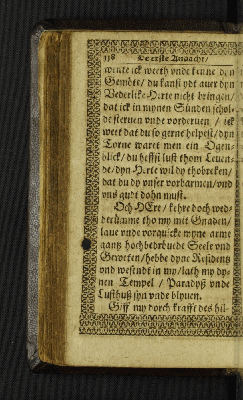 118 De erste Andacht/
wente ick weeth vnde kenne dyn
Gemöte/ du kanst ydt auer dyn
Vederlike Herte nicht bringen/
dat ick in mynen Sünden schol-
de steruen vnde vorderuen / ick
weet dat du so gerne helpest/ dyn
Torne waret men ein Ogen-
blick/ du heffst lust thom Leuen-
de/ dyn Herte wil dy thobreken/
dat du dy vnser vorbarmen/ vnd
vns gudt dohn must.
Och HEre / kehre doch wed-
derümme tho my mit Gnaden/
laue vnde vorquicke myne arme
gantz hochbedröuede Seele vnd
Geweten/ hebbe dyne Residentz
vnd wesendt in my/ lath my dy-
nen Tempel / Paradyß vnde
Lusthuß syn vnde blyuen.
Giff my dorch krafft des hil-